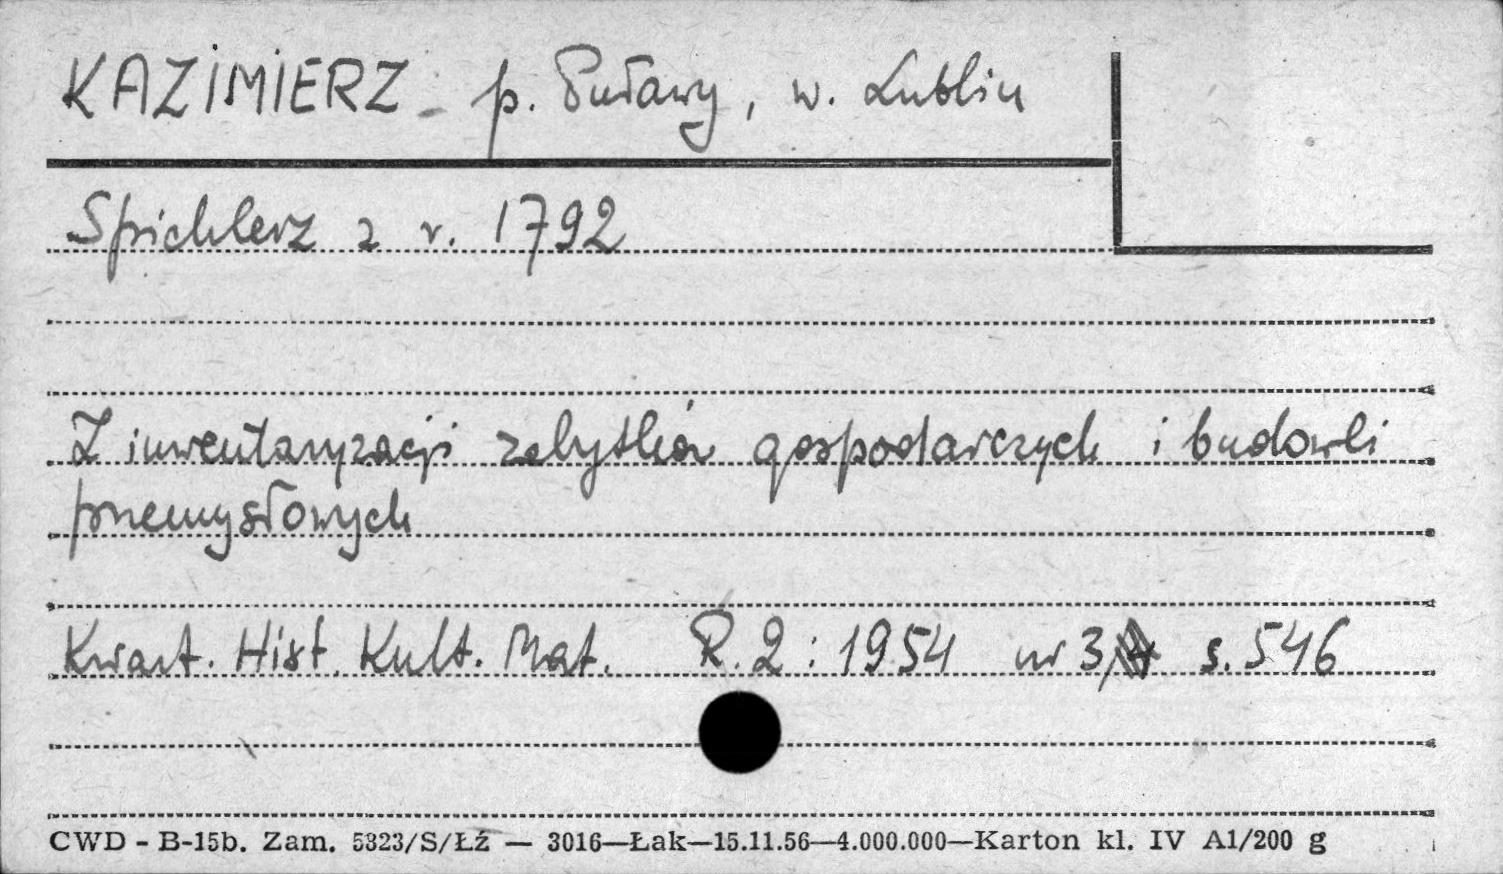 KAZIMIERZ - p. Puławy, w. Lublin
Spichlerz z r. 1792
Z inwentaryzacji zabytków gospodarczych i budowli
przemysłowych
Kwart. Hist. Kult. Mat. R. 2 : 1954 nr 3, s. 546
CWD - B-15b. Zam. 5323/S/Łź — 3016—Łak—15.11.56—4.000.000—Karton kl. IV A1/200 g